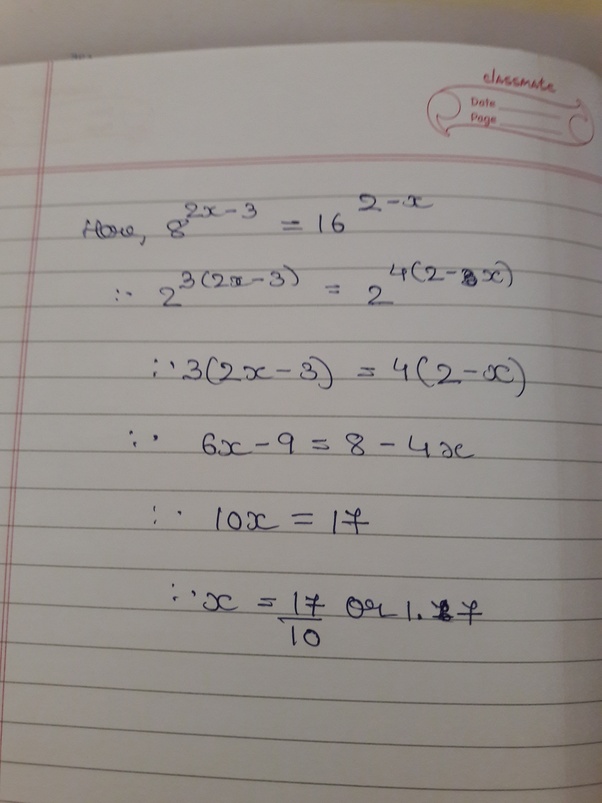 classmate
Date
Page
Here, 8^{2x-3} = 16^{2-x}
∴ 2^{3(2x-3)} = 2^{4(2-x)}
∴ 3(2x-3) = 4(2-x)
∴ 6x-9 = 8-4x
∴ 10x = 17
∴ x = 17/10 or 1.7